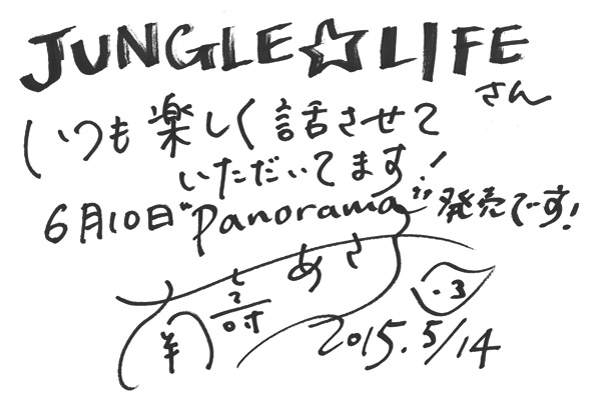 JUNGLE☆LIFE
さん
いつも楽しく話させて
いただいてます！
6月10日“Panorama”発売です！
あさ
2015.5/14